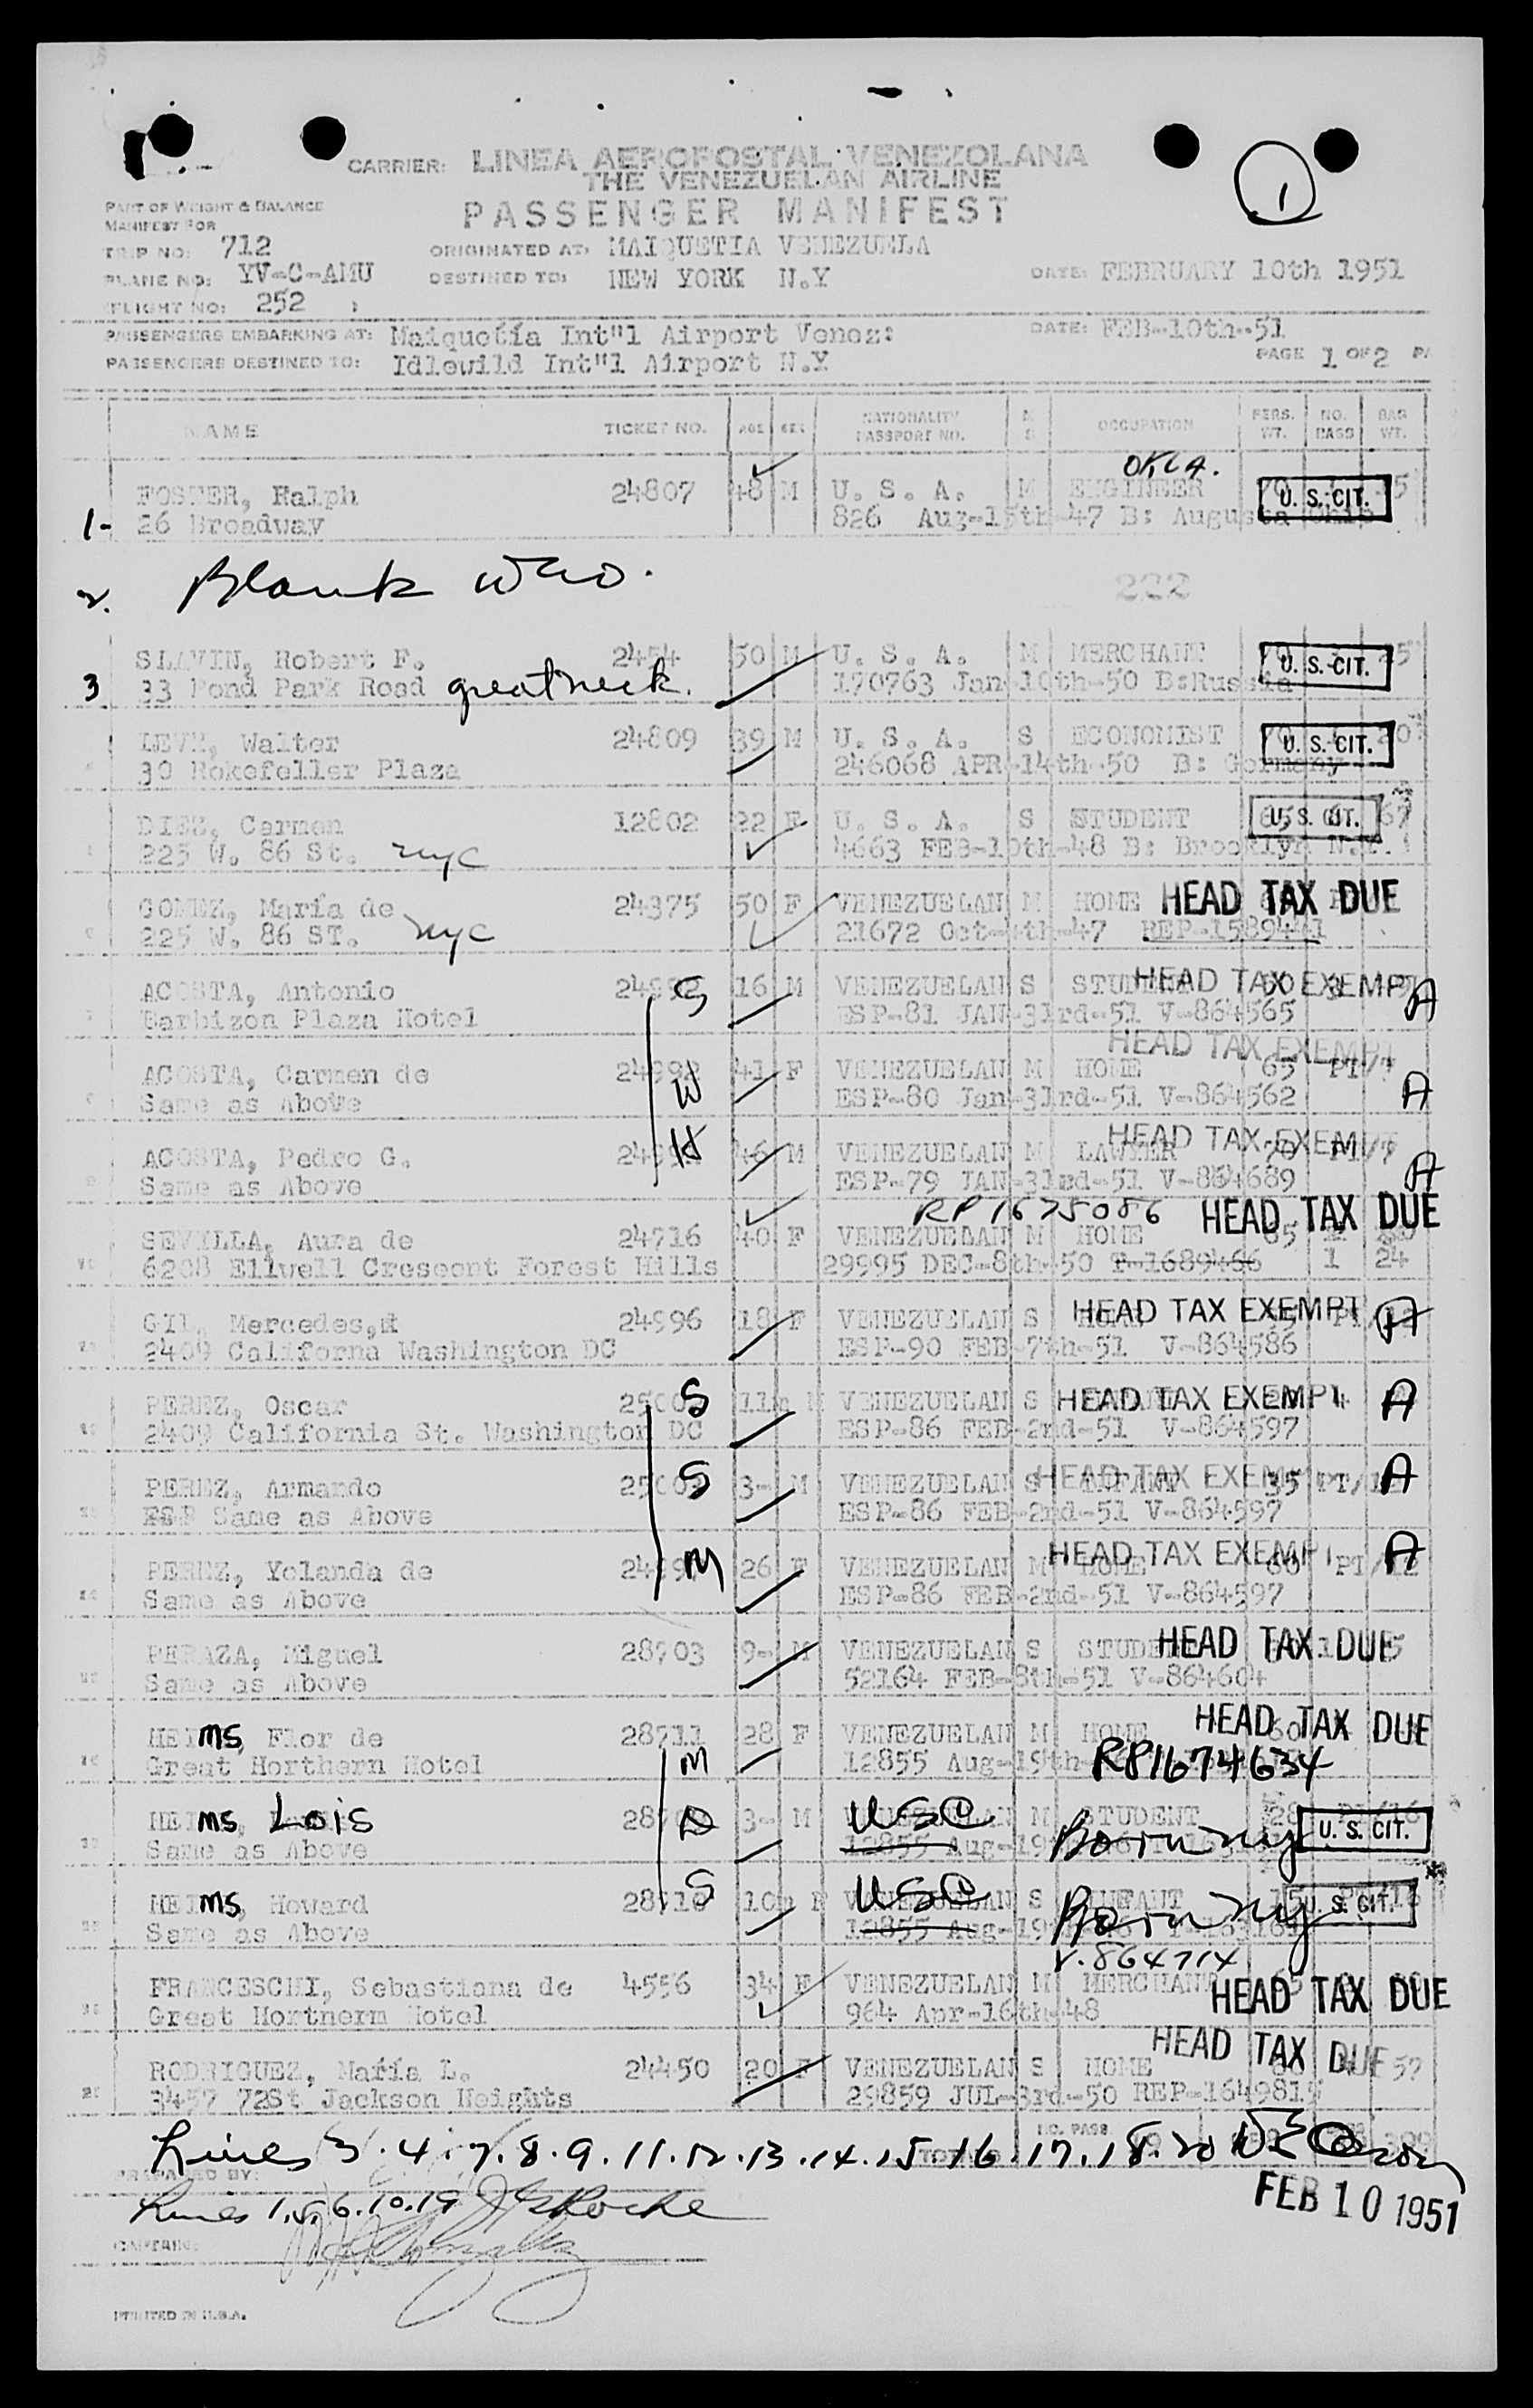 CARRIER: LINEA AEROPOSTAL VENEZOLANA
THE VENEZUELAN AIRLINE
PASSENGER MANIFEST
1
PART OF WEIGHT & BALANCE
MANIFEST FOR
TRIP NO: 712
ORIGINATED AT: MAIQUETIA VENEZUELA
PLANE NO: YV-C-AMU
DESTINED TO: NEW YORK N.Y
DATE: FEBRUARY 10th 1951
FLIGHT NO: 252
PASSENGERS EMBARKING AT: Maiquetía Int"l Airport Venez:
DATE: FEB-10th-51
PASSENGERS DESTINED TO: Idlewild Int"l Airport N.Y
PAGE 1 OF 2
NAME TICKET NO. AGE SEX NATIONALITY PASSPORT NO. M S OCCUPATION PERS. WT. NO. PASS BAG WT.
OKLA.
FOSTER, Ralph 24807 48 M U. S. A. M ENGINEER U. S. CIT.
1- 26 Broadway 826 Aug-15th-47 B: Augusta
2. Blank
222
SLAVIN, Robert F. 2454 50 M U. S. A. M MERCHANT U. S. CIT. 25
3 33 Pond Park Road great neck. 170763 Jan-10th-50 B:Russia
LEVY, Walter 24809 39 M U. S. A. S ECONOMIST U. S. CIT. 20
30 Rokefeller Plaza 246068 APR-14th-50 B: Germany
DIEZ, Carmen 12802 22 F U. S. A. S STUDENT U. S. CIT. 67
225 W. 86 St. nyc 4663 FEB-10th-48 B: Brooklyn N.Y.
GOMEZ, María de 24375 50 F VENEZUELAN M HOME HEAD TAX DUE
225 W. 86 ST. nyc 21672 Oct-4th-47 REP-1589441
ACOSTA, Antonio 24992 S 16 M VENEZUELAN S STUDENT HEAD TAX EXEMPT A
Barbizon Plaza Hotel ESP-81 JAN-31rd-51 V-864565
HEAD TAX EXEMPT
ACOSTA, Carmen de W 41 F VENEZUELAN M HOME 65 PT/7 A
Same as Above ESP-80 Jan-31rd-51 V-864562
ACOSTA, Pedro G. H 46 M VENEZUELAN M LAWYER HEAD TAX EXEMPT A
Same as Above ESP-79 JAN-31rd-51 V-864689
RP 1675086 HEAD TAX DUE
SEVILLA, Aura de 24716 40 F VENEZUELAN M HOME
6208 Ellwell Crescent Forest Hills 29995 DEC-8th-50 T-1689466 1 24
GIL, Mercedes, 24996 18 F VENEZUELAN S HOME HEAD TAX EXEMPT A
2409 Californa Washington DC ESP-90 FEB-7th-51 V-864586
PEREZ, Oscar S 11m M VENEZUELAN S HEAD TAX EXEMPT A
2409 California St. Washington DC ESP-86 FEB-2nd-51 V-864597
PEREZ, Armando S 3- M VENEZUELAN S INFANT HEAD TAX EXEMPT 35 A
ESP Same as Above ESP-86 FEB-2nd-51 V-864597
PEREZ, Yolanda de M 26 F VENEZUELAN M HOME HEAD TAX EXEMPT 60 PT/12 A
Same as Above ESP-86 FEB-2nd-51 V-864597
PERAZA, Miguel 28703 9- M VENEZUELAN S STUDENT HEAD TAX DUE
Same as Above 52164 FEB-8th-51 V-864604
HEIms, Flor de 28711 28 F VENEZUELAN M HOME HEAD TAX DUE
Great Horthern Hotel M 12855 Aug-19th- RP1674634
HEIms, Lois D 3- M USC STUDENT 28 U. S. CIT.
Same as Above 12855 Aug-19 Born ny
HEIms, Howard 28710 S 10m USC S INFANT U. S. CIT.
Same as Above 12855 Aug-19 Born ny
V.864714
FRANCESCHI, Sebastiana de 4556 34 F VENEZUELAN M MERCHANT HEAD TAX DUE
Great Hortnerm Hotel 964 Apr-16th-48
RODRIGUEZ, María L. 24450 20 F VENEZUELAN S HOME HEAD TAX DUE 57
3457 72St Jackson Heights 29859 JUL-3rd-50 REP-1649815
NO. PASS
Lines 3.4.7.8.9.11.12.13.14.15.16.17.18.20
PREPARED BY:
FEB 10 1951
Lines 1.5.6.10.19 Roche
CAPTAIN:
PRINTED IN U.S.A.